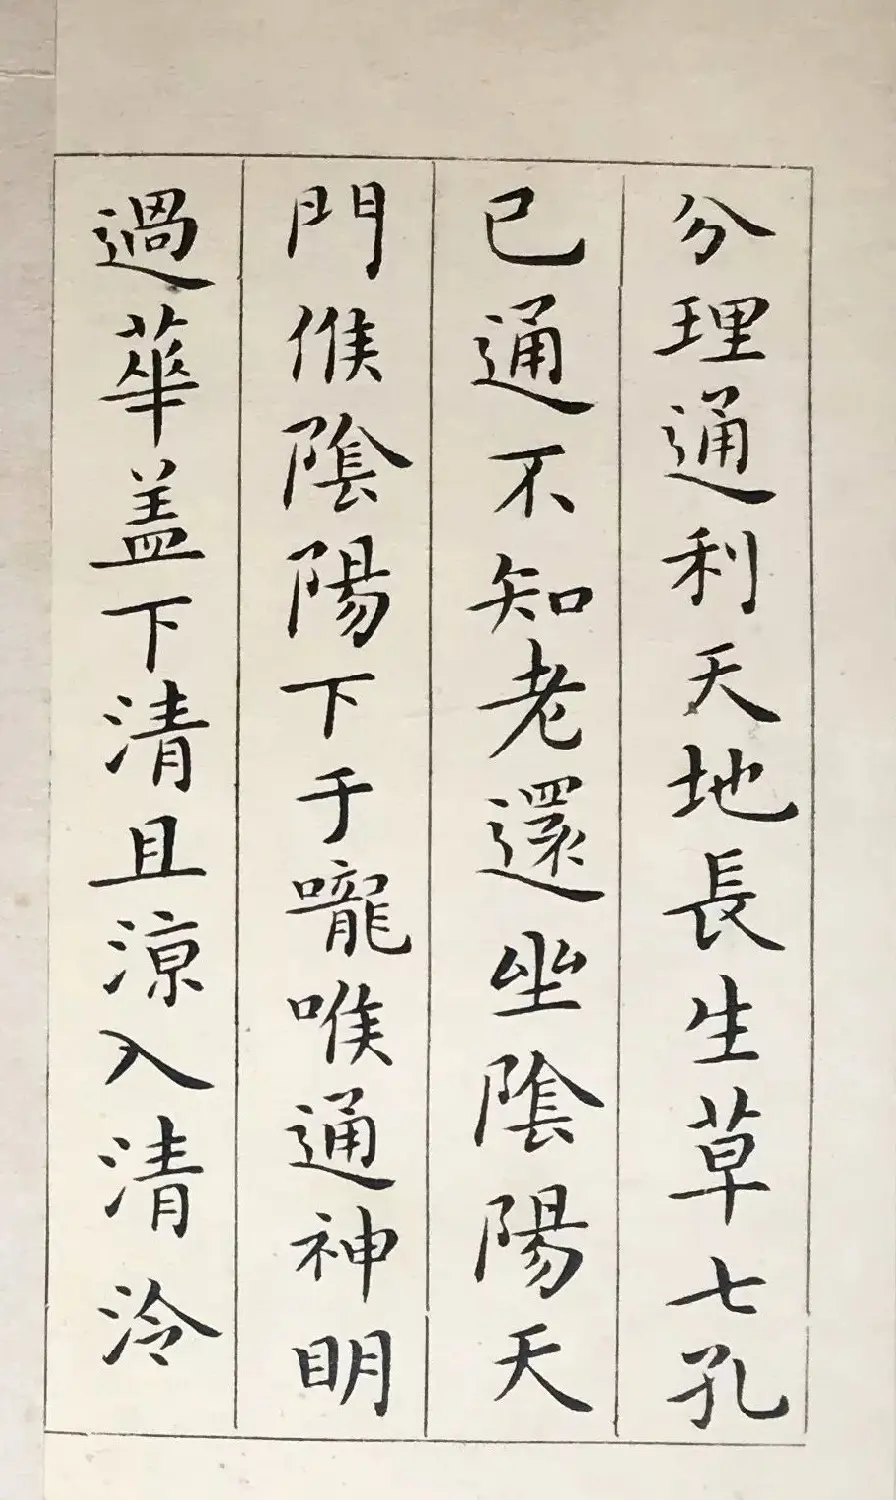 分理通利天地長生草七孔
已通不知老還坐陰陽天
門候陰陽下于嚨喉通神明
過華盖下清且涼入清泠